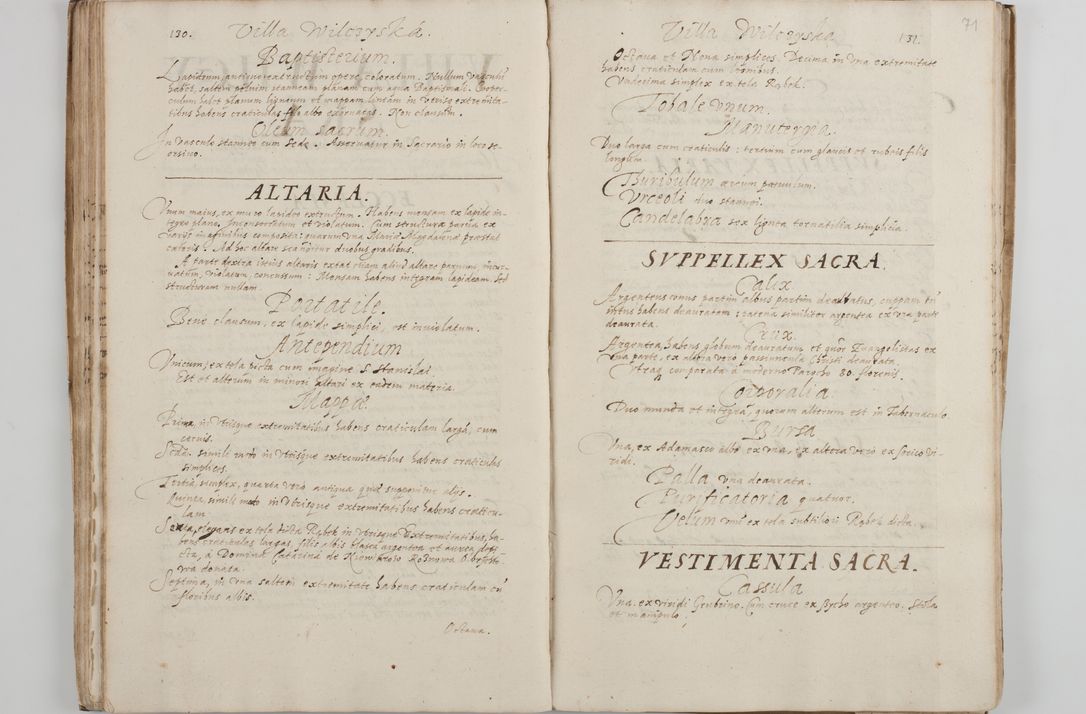 130. Villa Wilczyská.
Baptisterium.
Lapideum, antiquo extructum opere coloratum. Nullum vasculū
habet, saltem peluim stanneam planam cum aqua Baptismali. Coper-
culum habet planum ligneum et mappam lineam in utrisque extremita-
tibus habens craticulas filo albo exornatas. Non clausum.
Oleum sacrum.
In vasculo stanneo cum sede. Asseruatur in Sacrario in loco se-
orsivo.
ALTARIA.
Unum maius, ex muro lapideo extructum. Habens mensam ex lapide in-
tegro plano. Inconsecratum et violatum. Cum structura parva ex
variis imaginibus composita: quarum una Mariæ Magdalenæ præstat
cæteris. Ad hoc altare scanditur duobus gradibus.
A parte dextra istius altaris extat etiam aliud altare parvum, incur-
uatum, violatum, concussum: Mensam habens integram lapideam. Sed
structuram nullam.
Portatile.
Bene clausum, ex lapide simplici, est inviolatum.
Antependium
Unicum, ex tela picta cum imagine S. Stanislai
Est et alterum in minori altari ex eadem materia.
Mappæ.
Prima, in utrisque extremitatibus habens craticulam largā, cum
ceruis.
Scdā. simili modo in utrisque extremitatibus habens craticulas
simplices.
Tertia, simplex, quarta vero antiqua quæ supponitur alijs.
Quinta, simili modo in utrisque extremitatibus habens craticu-
lam
Sexta, elegans ex tela dicta Rąbek in utrisque extremitatibus, ha-
bens craticulas largas, filis albis
cia, à Domina Catarina de
wa donata.
Septima, in una saltem extremitate habens craticulam cū
floribus albis.
Octaua.
71
Villa Wilczyska 131.
Octaua et Nona simplices. Decima in una extremitate
habens craticulam cum leonibus.
Undecima simplex ex tela Rąbek.
Tobale unum.
Manuterna.
Duo larga cum craticulis: tertium cum glaucis et rubeis filis
longum.
Thuribulum æreum parvulum.
Urceoli duo stannei.
Candelabra sex lignea tornatilia simplicia.
SVPPELLEX SACRA.
Calix
Argenteus unus partim albus partim deauratus, cuppam in
intus habens deauratam: patena similiter argentea ex una parte
deaurata.
Crux.
Argentea, habens globum deauratum et quōr Evangelistas ex
una parte, ex altera vero passiuncula Christi deaurata
Utraq comparata à moderno Parocho 80. florenis.
Corporalia.
Duo munda et integra, quorum alterum est in Tabernaculo
Bursa
Una, ex Adamasco albo ex una, ex altera vero ex serico vi-
ridi.
Palla una deaurata.
Purificatoria quatuor.
Velum unū ex tela subtiliori Rąbek dicta.
VESTIMENTA SACRA.
Cassula
Una. ex viridi Grubrino. Cum cruce ex argenteo. Stola
et manipulo.